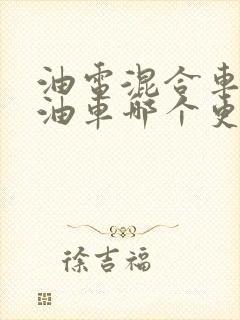 油電混合車
油車哪个更
徐吉福